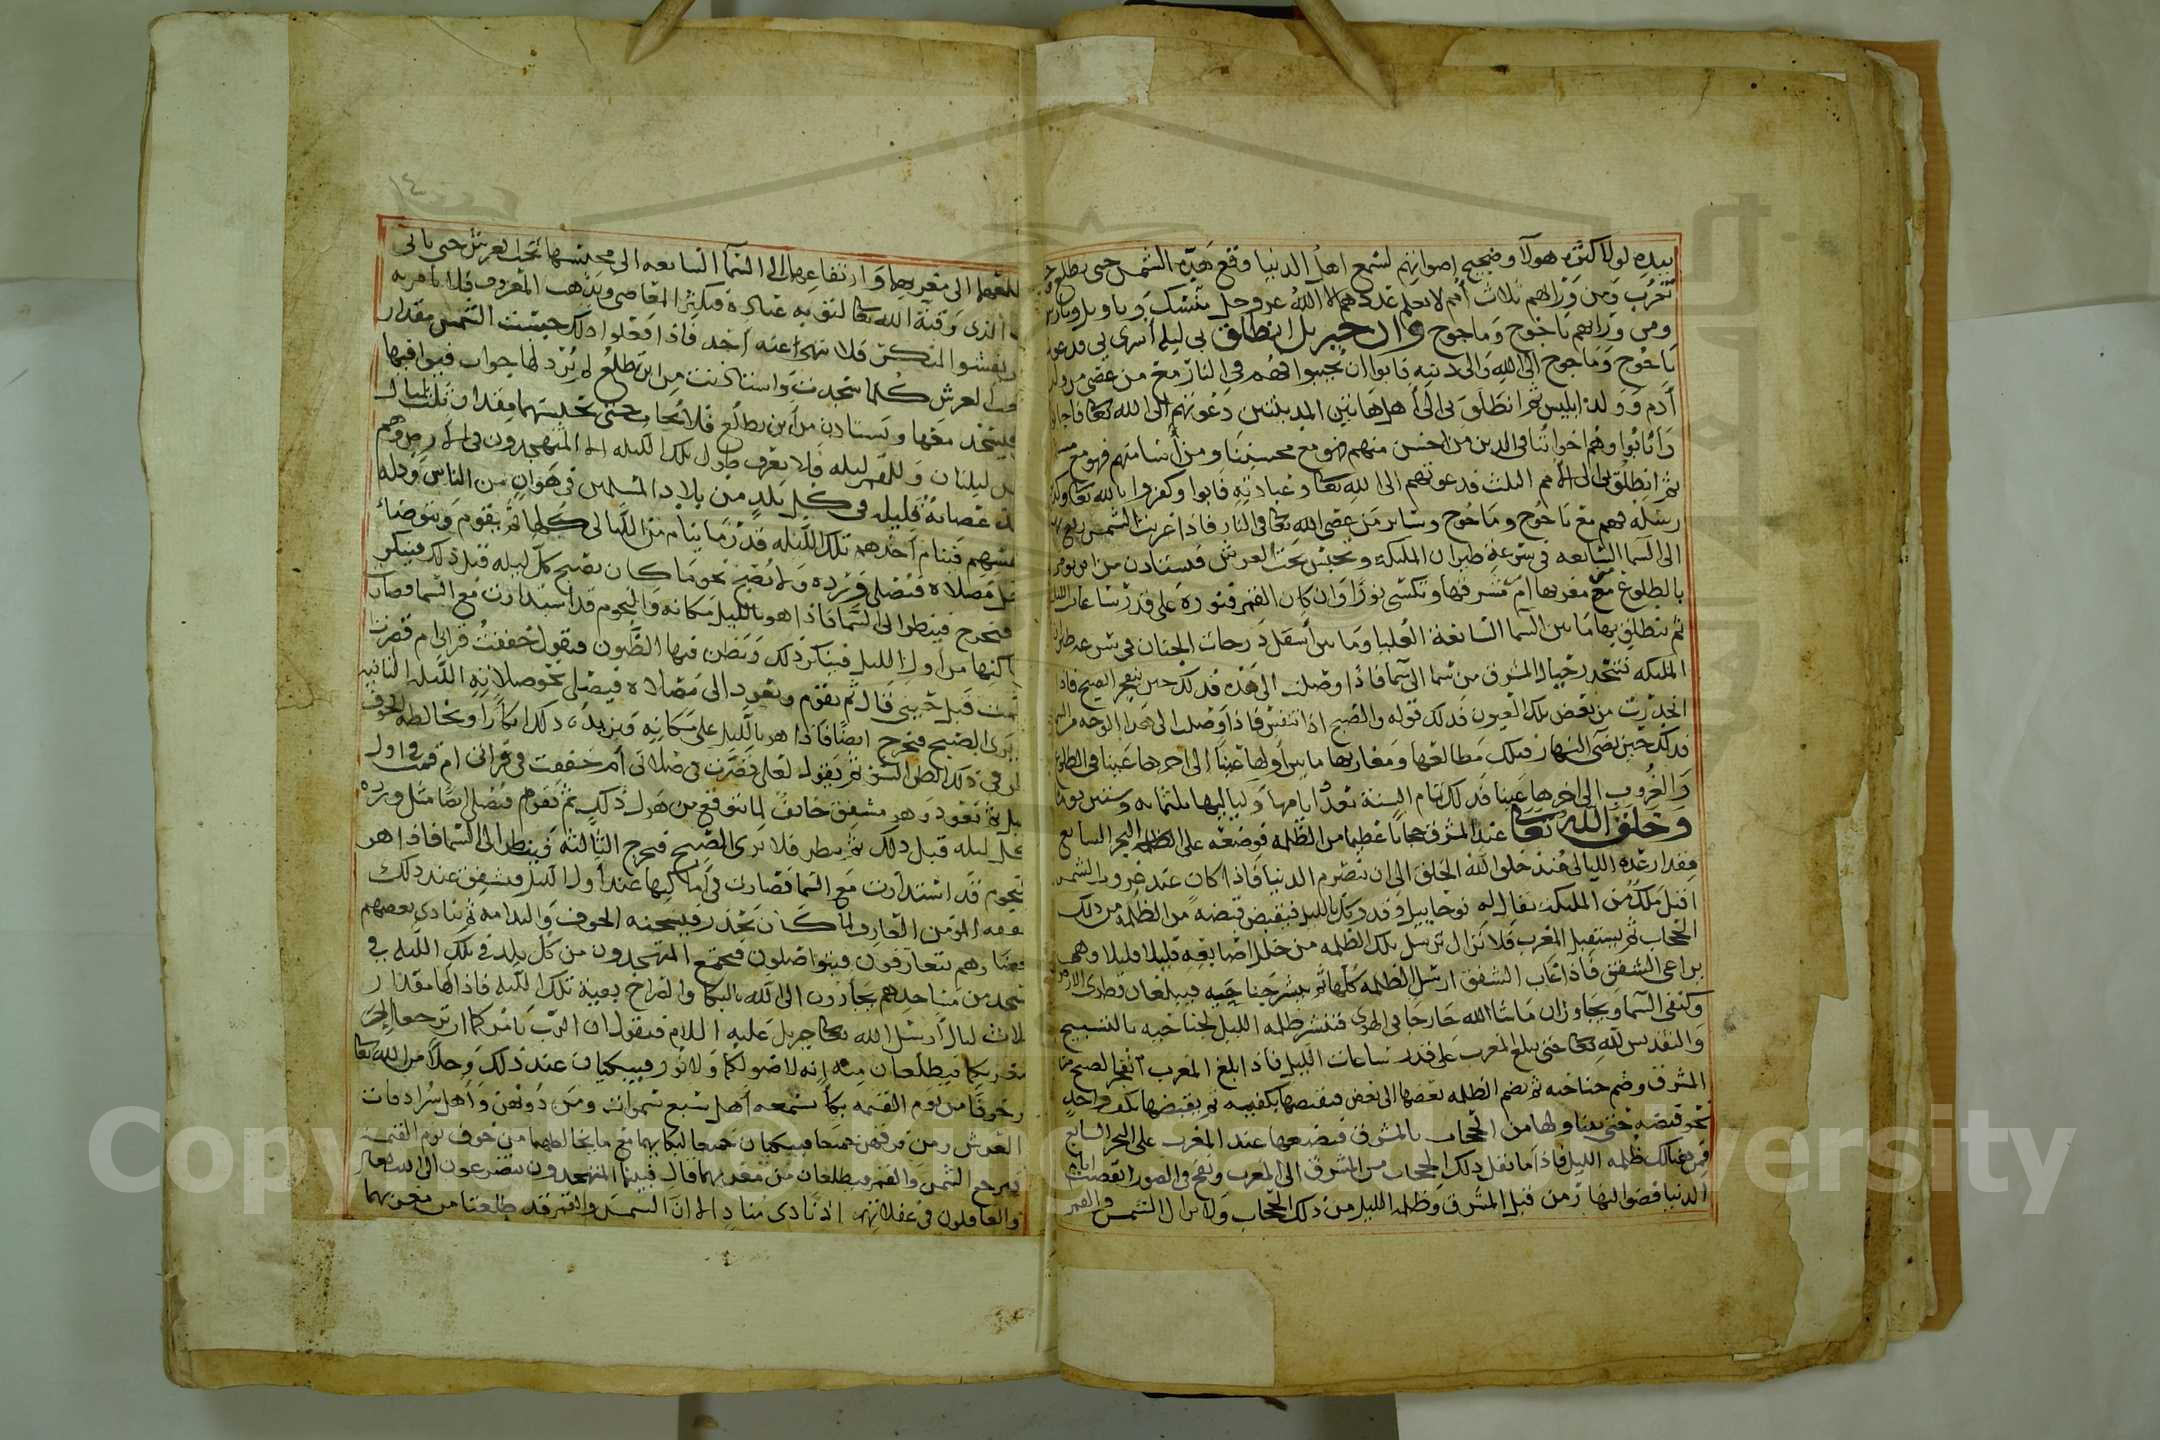 بيده لولا كثره هولآ وضجيج اصواتهم لسمع اهل الدنيا وقع هذه الشمس حين تطلع
تغرب ومن ورائهم ثلاث أمم لا يعلم عددهم الا الله عز وجل منسك وتاويل وتاريس
ومن ورائهم ياجوج وماجوج وان جبريل انطلق بي ليلة أسري بي فدعوت
ياجوج وماجوج الى الله والى دينه فابوا ان يجيبوا فهم في النار مع من عصى من ولد
آدم وولد ابليس ثم انطلق بي الى أهل هاتين المدينتين دعوتهم الى الله تعالى فاجابوا
وأنابوا وهم اخواننا في الدين من احسن منهم فهو مع محسننا ومن أسا منهم فهو مع
ثم انطلق بي الى الامم الثلث فدعوتهم الى الله تعالى وعبادته فابوا وكفروا بالله تعالى وكذبوا
رسله فهم مع ياجوج وماجوج وسائر من عصى الله تعالى في النار فاذا غربت الشمس رفع بها
الى السما السابعه في سرعة طيران الملئكة وتحبس تحت العرش فتستاذن من اين تومر
بالطلوع من مغربها أم مشرقها وتكسى نورًا وان كان القمر فنوره على قدر ساعات الليل
ثم ينطلق بها ما بين السما السابعة العليا وما بين أسفل درجات الجنان في سرعه طيران
الملئكه فتنحدر حيال المشرق من سما الى سما فاذا وصلت الى هذه فذلك حين ينفجر الصبح فاذا
انحدرت من بعض تلك العيون فذلك قوله والصبح اذا تنفس فاذا وصلت الى هذا الوجه من السما
فذلك حين يضي النهار فتلك مطالعها ومغاربها ما بين أولها عينًا الى اخرها عينا في الطلوع
والغروب الى اخرها عينا فذلك تمام السنة بعدد ايامها ولياليها ثلثمائه وستين يوما
وخلق الله تعالى عند المشرق حجابا عظيما من الظلمه فوضعه على البحر السابع
مقدار عده الليالي منذ خلق الله الخلق الى ان تنصرم الدنيا فاذا كان عند غروب الشمس
اقبل ملك من الملئكة يقال له قد وكل بالليل فيقبض قبضه من الظلمه من ذلك
الحجاب ثم يستقبل المغرب فلا تزال ترسل تلك الظلمه من خلل اصابعه قليلا قليلا وهو
يراعي الشفق فاذا غاب الشفق ارسل الظلمه كلها ثم ينشر جناحيه فيبلغان قطري الارض
وكنفي السما ويجاوزان ما شا الله خارجا في الهوى فتنشر ظلمه الليل بجناحيه بالتسبيح
والتقديس لله تعالى حتى يبلغ المغرب على قدر ساعات الليل فاذا بلغ المغرب انفجر الصبح من
المشرق وضم جناحيه ثم يضم الظلمه بعضها الى بعض فيقبضها بكفيه ثم يقبضها بكف واحد
نحو قبضه حتى يتناولها من الحجاب بالمشرق فيضعها عند المغرب على البحر السابع
فمن هنالك ظلمه الليل فاذا ما نقل ذلك الحجاب من المشرق الى المغرب ونفخ في الصور انقضت
الدنيا فضوا النهار من قبل المشرق وظلمه الليل من ذلك الحجاب ولا تزال الشمس والقمر
الى مغربهما وارتفاعهما الى السما السابعه الى محبسهما تحت العرش حتى ياتي
الذي وقته الله تعالى لتوبة عباده فتكثر المعاصي ويذهب المعروف فلا يامر به
ويفشوا المنكر فلا ينهى عنه أحد فاذا فعلوا ذلك حبست الشمس مقدار
تحت العرش كلما سجدت واستاذنت من اين تطلع لم يرد لها جواب فيوافيها
فيسجد معها ويستاذن من أين يطلع فلا يجاب حتى يحبسهما مقدار ثلث ليال
ليلتان وللقمر ليله فلا يعرف طول تلك الليله الا المتهجدون في الارض وهم
عصابة قليله في كل بلد من بلاد المسلمين في هوان من الناس وذله
فينام أحدهم تلك الليله قدر ما ينام من الليالي كلها ثم يقوم ويتوضا
مصلاه فيصلي ورده ولا يصبح نحو ما كان يصبح كل ليله قبل ذلك فينكر
فيخرج فينظر الى السما فاذا هو بالليل مكانه والنجوم قد استدارت مع السما فصارت
اماكنها من أول الليل فينكر ذلك ويظن فيها الظنون فيقول خففت قرائي ام قصرت
قمت قبل حيني قال ثم يقوم ويعود الى مصلاه فيصلي نحو صلاته الليله الثانيه
يرى الصبح فيخرج ايضًا فاذا هو بالليل على مكانه ويزيده ذلك انكارًا ويخالطه الخوف
في ذلك الظن السوء ثم يقول لعلي قصرت في صلاتي أم خففت في قراتي ام قمت في اول
ثم يعود وهو مشفق خائف لما يتوقع من هول ذلك ثم يقوم فيصلي ايضًا مثل ورده
كل ليله قبل ذلك ثم ينظر فلا يرى الصبح فيخرج الثالثه فينظر الى السما فاذا هو
بالنجوم قد استدارت مع السما فصارت في أماكنها عند أول الليل فيشفق عند ذلك
شفقه المؤمن العارف لما كان يحذر فيستخفه الخوف والندامه ثم ينادي بعضهم
بعضا وهم يتعارفون ويتواصلون فيجتمع المتهجدون من كل بلد في تلك الليله في
مسجد من مساجدهم يجارون الى الله بالبكا والصراخ بقية تلك الليله فاذا لها مقدار
ثلاث ليال أرسل الله تعالى جبريل عليه السلام فيقول ان الرب يامركما ان ترجعا الى
مغربكما فتطلعان منه إنه لا ضو لكما ولا نور فيبكيان عند ذلك وجلا من الله تعالى
وخوفًا من يوم القيمه بكأ يسمعه أهل سبع سموات ومن دونهن وأهل سرادقات
العرش ومن فوقهن جميعا فيبكيان جميعا لبكائهما مع ما يخالطهما من خوف يوم القيمة
فيرجع الشمس والقمر فيطلعان من مغربهما قال فبينا المتهجدون يتضرعون الى الله تعالى
والغافلون في غفلاتهم اذ نادى مناد الا ان الشمس والقمر قد طلعتا من مغربهما